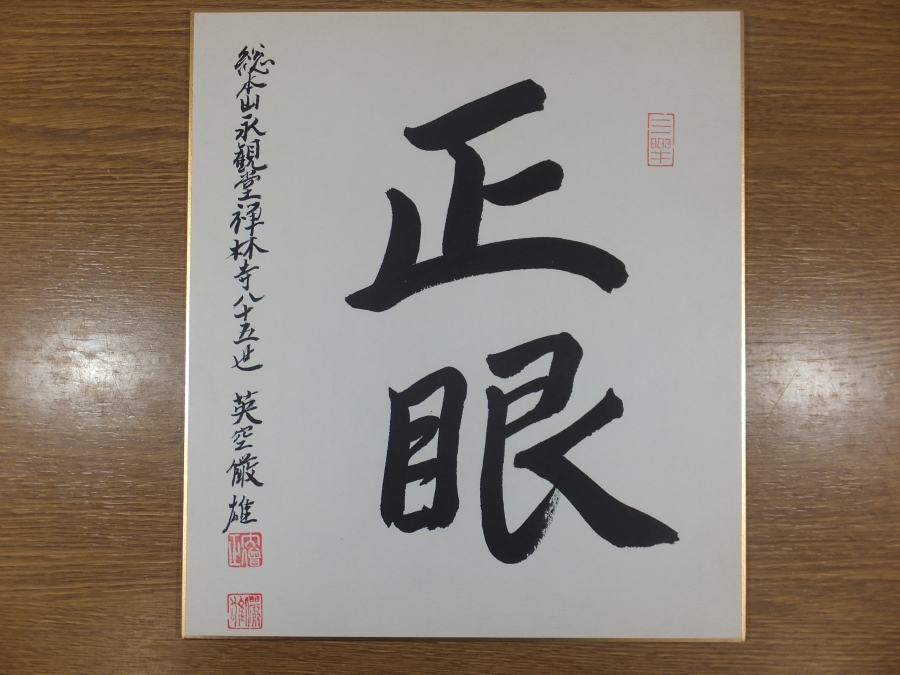 正眼
総本山永観堂禅林寺八十五世 英空儼雄